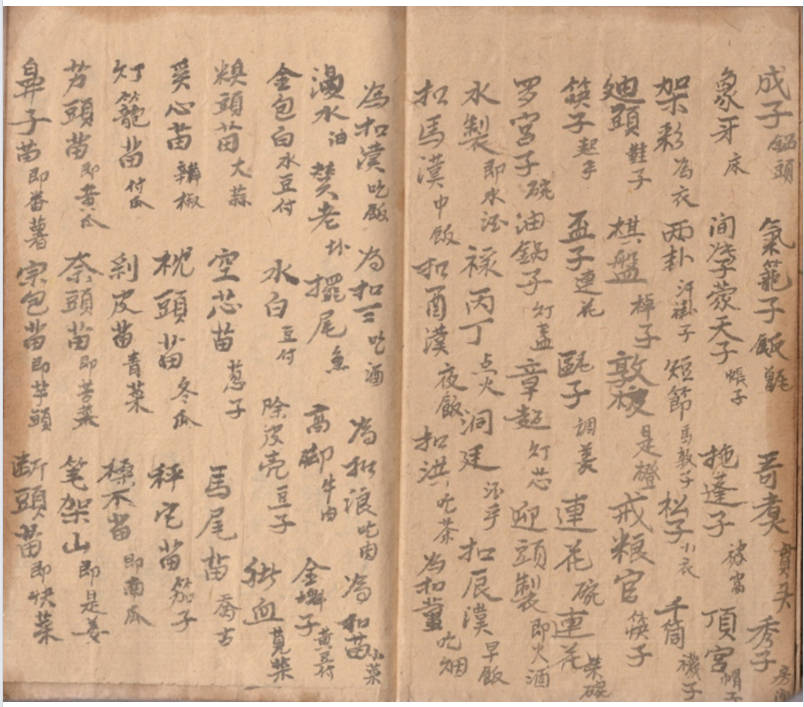 成子 鍋頭 氣蓖子 飯甑 哥煑 賣头 秀子
象牙 床 间 蒙天子 帳子 拖蓬子 被窩 頂宮 帽子
架彩 為衣 两卦 汗褂子 短節 馬敦子 松子 小衣 千筒 襪子
廸頭 鞋子 棋盤 棹子 敦椟 是橙 戒粮官 筷子
筷子 起手 盃子 連花 子 調羹 連花 碗 連花 柴碗
罗宫子 碗 油鍋子 灯盏 章超 灯芯 迎頭製 即火酒
水製 即水酒 禄丙丁 点火 洞廷 酒乎 扣辰漢 早飯
扣馬漢 中飯 扣酉漢 夜飯 扣洪 吃茶 為扣薰 吃烟
為扣漢 吃飯 為扣三 吃酒 為扣浪 吃肉 為扣苗 小菜
湯水 油 老 擺尾 魚 高脚 牛肉 金 子 黄豆付
金包白 水豆付 水白 豆付 除皮壳 豆子 血 莧菜
糗頭苗 大蒜 空芯苗 葱子 馬尾苗
奚心苗 辣椒 枕頭苗 冬瓜 秤它苗 茄子
灯籠苗 付瓜 剥皮苗 青菜 木苗 即南瓜
艻頭苗 即黄瓜 奈頭苗 即苦菜 笔架山 即是姜
鼻子苗 即番薯 宗包苗 即芋頭 断頭苗 即快菜